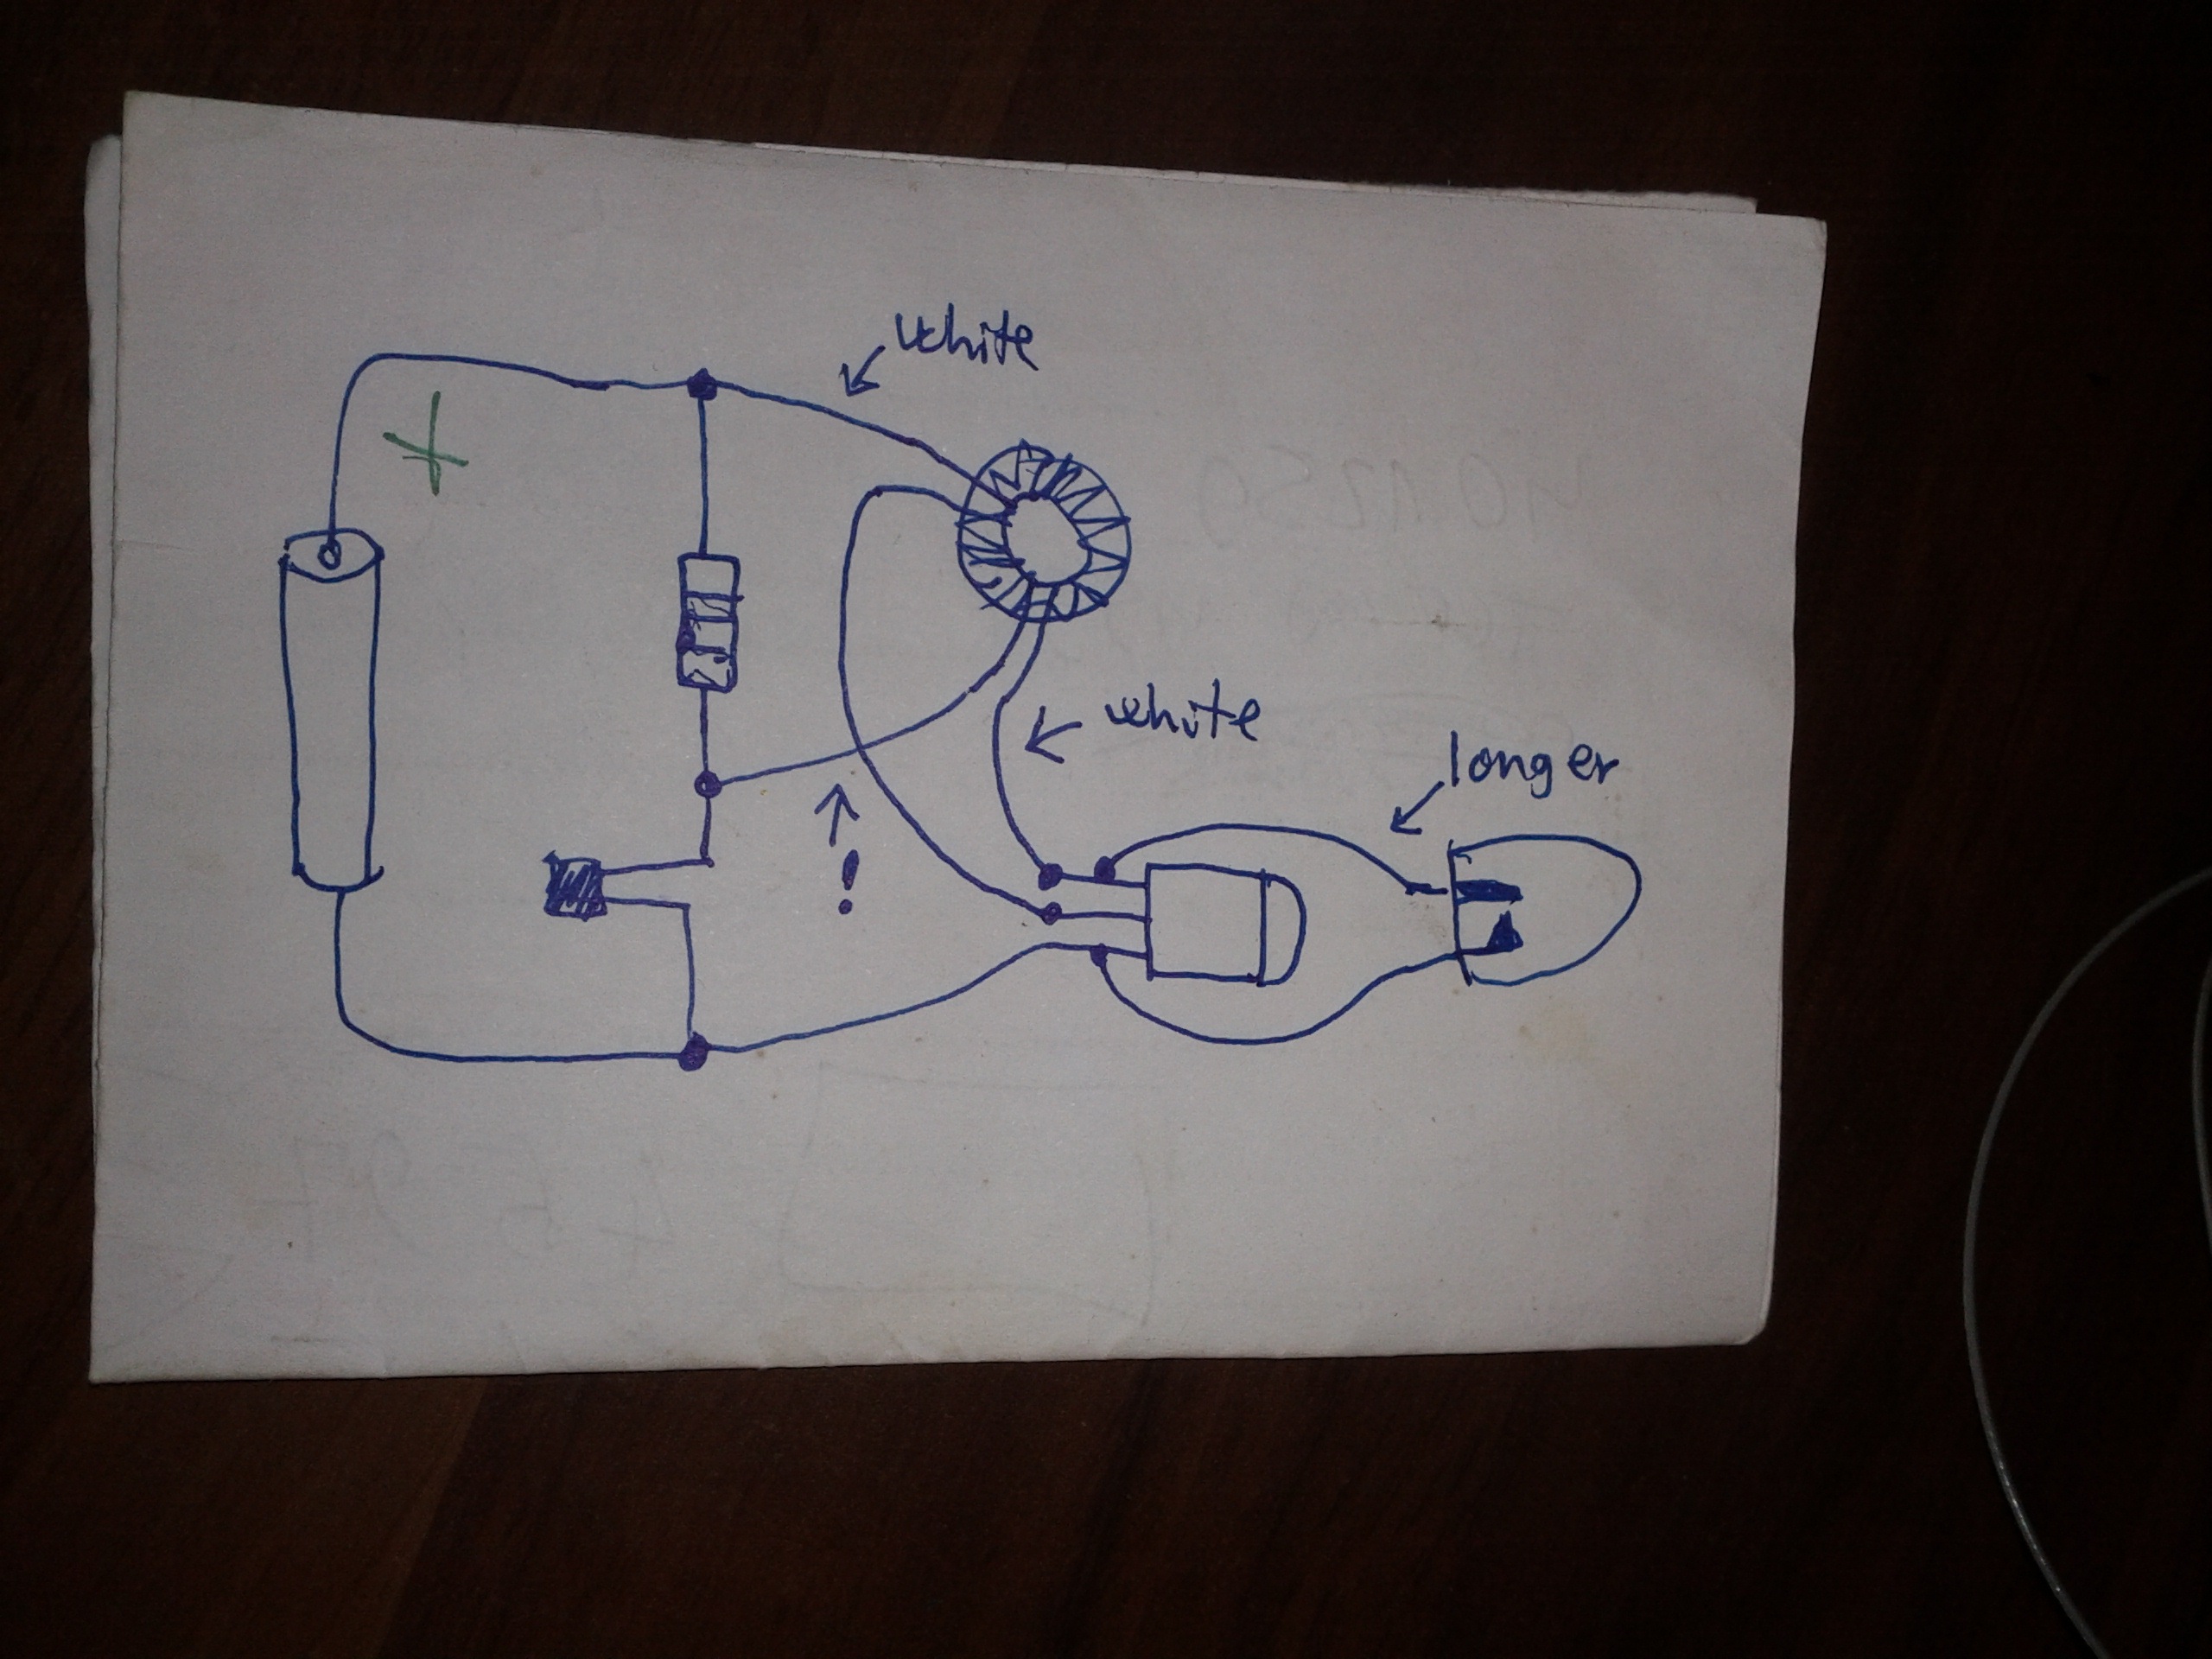 white
+
white
longer
!